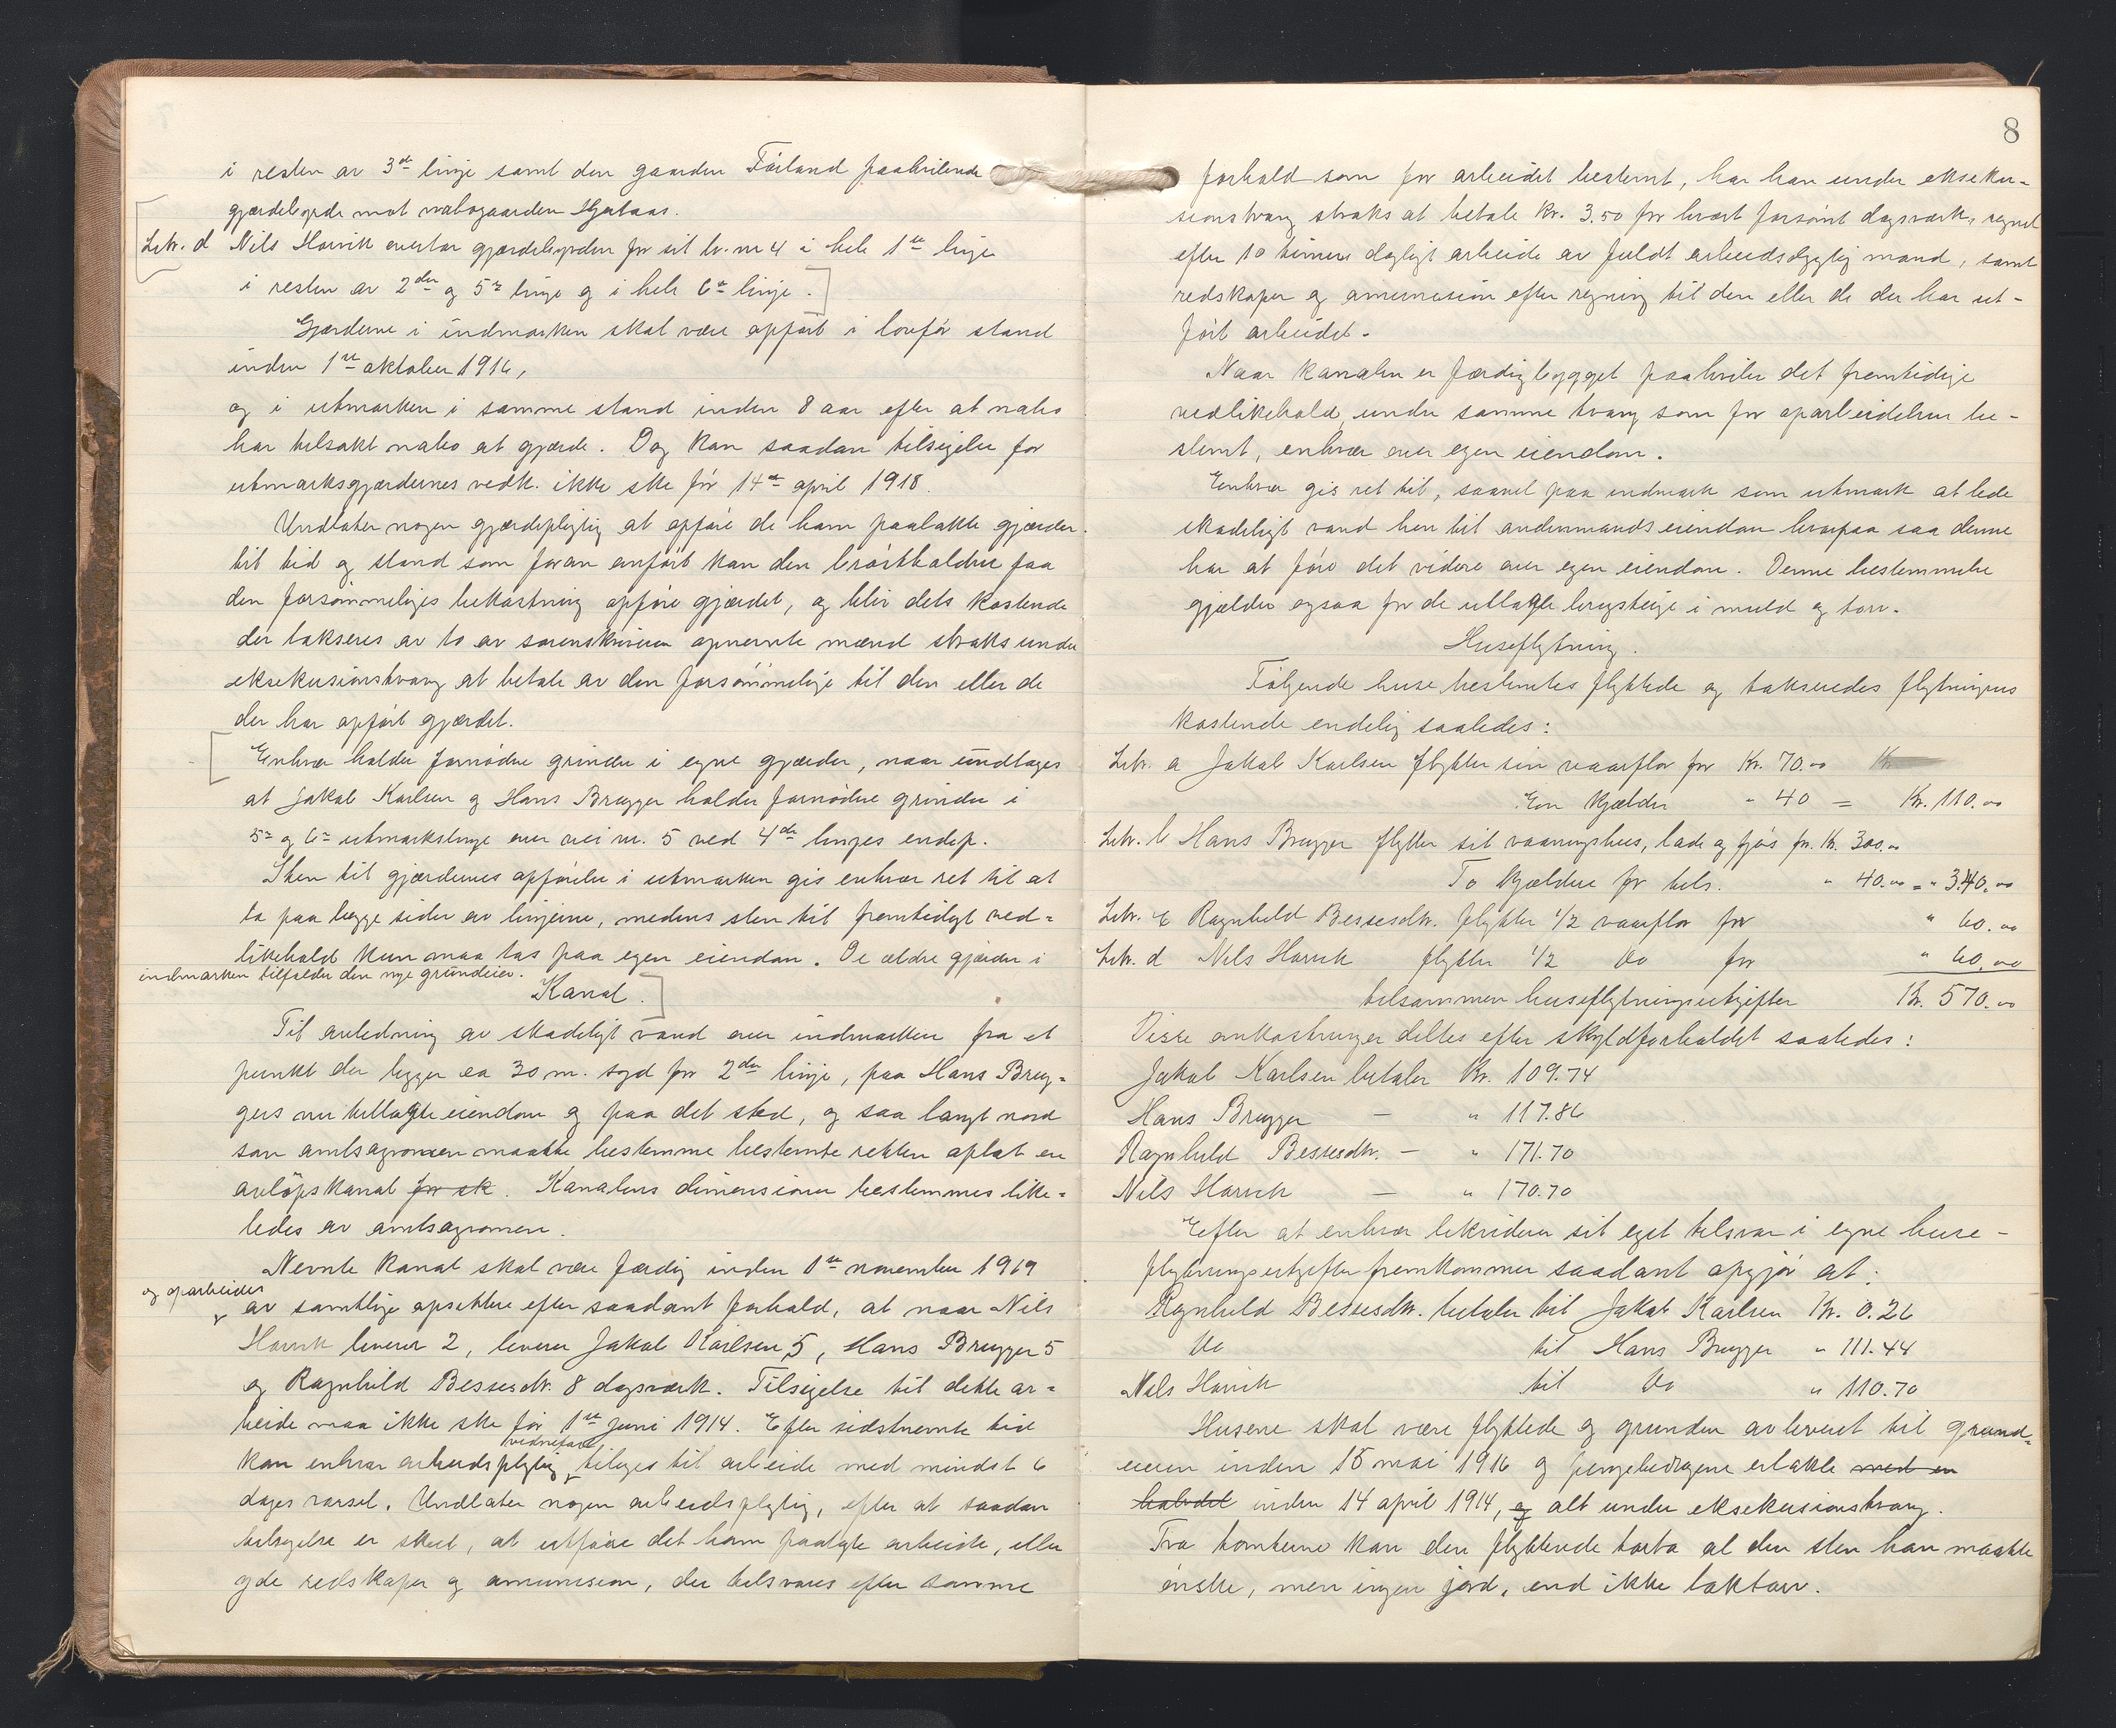 i resten av 3de linje samt den gaarden Førland paahvilende
gjærdebyrde mot nabogaarden Hjertaas.
Litr. d Nils Hovvik overtar gjærdebyrden for sit br. nr 4 i hele 1ste linje
i resten av 2den og 5te linje og i hele 6te linje.
Gjærderne i indmarken skal være opført i lovfør stand
inden 1ste oktober 1916,
og i utmarken i samme stand inden 8 aar efter at nabo
har tilsakt nabo at gjærde. Dog kan saadan tilsigelse for
utmarksgjærdernes vedk. ikke ske før 14de april 1918.
Undlater nogen gjærdepligtig at opføre de ham paalakte gjærder
til tid og stand som foran anført kan den brøstholdne faa
den forsømmeliges bekostning opføre gjærdet, og blir dets kostende
der takseres av to av sorenskriveren opnevnte mænd straks under
eksekusionstvang at betale av den forsømmelige til den eller de
der har opført gjærdet.
Enhver holder fornødne grinder i egne gjærder, naar undtages
at Jakob Karlsen og Hans Brygger holder fornødne grinder i
5te og 6te utmarkslinje over vei nr. 5 ved 4de linjes endep.
Sten til gjærdernes opførelse i utmarken gis enhver ret til at
ta paa begge sider av linjerne, medens sten til fremtidigt ved=
likehold kun maa tas paa egen eiendom. De ældre gjærder i
indmarken tilfalder den nye grundeier.
Kanal.
Til avledning av skadeligt vand over indmarken fra et
punkt der ligger ca 30 m. syd for 2den linje, paa Hans Bryg=
gers nu tillagte eiendom og paa det sted, og saa langt nord
som amtsagronomen maatte bestemme bestemte retten oplat en
avløpskanal for sk. Kanalens dimensioner bestemmes like=
ledes av amtsagronomen.
Nevnte kanal skal være færdig inden 1ste november 1919
og oparbeides
av samtlige opsittere efter saadant forhold, at naar Nils
Hovvik leverer 2, leverer Jakob Karlsen 5, Hans Brygger 5
og Ragnhild Bessesdtr. 8 dagsværk. Tilsigelse til dette ar=
beide maa ikke ske før 1ste juni 1914. Efter sidstnevnte tid
vidnefast
kan enhver arbeidspligtig tilsiges til arbeide med mindst 6
dages varsel. Undlater nogen arbeidspligtig, efter at saadan
tilsigelse er skeet, at utføre det ham paalagte arbeide, eller
yde redskaper og amunision, der tilsvares efter samme
8
forhold som for arbeidet bestemt, har han under eksekus=
sionstvang straks at betale kr. 3.50 for hvert forsømt dagsværk, regnet
efter 10 timers dagligt arbeide av fuldt arbeidsdygtig mand, samt
redskaper og amunision efter regning til den eller de der har ut-
ført arbeidet.
Naar kanalen er færdigbygget paahviler det fremtidige
vedlikehold under samme tvang som for oparbeidelsen be-
stemt, enhver over egen eiendom.
Enhver gis ret til, saavel paa indmark som utmark at lede
skadeligt vand hen til andenmands eiendom hvorpaa saa denne
har at føre det videre over egen eiendom. Denne bestemmelse
gjælder ogsaa for de utlagte brugsteige i muld og torv.
Huseflytning.
Følgende huse bestemtes flyttede og takseredes flytningens
kostende endelig saaledes:
Litr. a Jakob Karlsen flytter sin vaarflor for Kr. 70.00 Kr.
En kjælder " 40 = Kr. 110.00
Litr. b Hans Brygger flytter sit vaaningshus, lade og fjøs for Kr. 300.00
To kjældere for tils. " 40.00 = " 340.00
Litr. c Ragnhild Bessesdtr. flytter 1/2 vaarflor for " 60.00
Litr. d Nils Hovvik flytter 1/2 do for " 60.00
tilsammen huseflytningsutgifter Kr. 570.00
Disse omkostninger deltes efter skyldforholdet saaledes:
Jakob Karlsen betaler Kr. 109.74
Hans Brygger — " 117.86
Ragnhild Bessesdtr. — " 171.70
Nils Hovvik — " 170.70
Efter at enhver likviderer sit eget tilsvar i egne huse-
flytningsutgifter fremkommer saadant opgjør at:
Ragnhild Bessesdtr. betaler til Jakob Karlsen Kr. 0.26
do til Hans Brygger " 111.44
Nils Hovvik til do " 110.70
Husene skal være flyttede og grunden avleveret til grund=
eieren inden 15 mai 1916 og pengebidragene erlakte med en
halvdel inden 14 april 1914, og alt under eksekusionstvang.
Fra tomterne kan den flyttende tar bort al den sten han maatte
ønske, men ingen jord, end ikke taktorv.